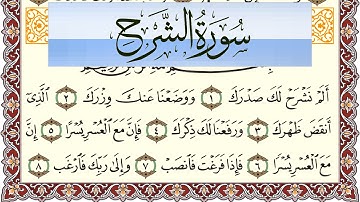 سُورَةُ الشَّرْحِ
أَلَمْ نَشْرَحْ لَكَ صَدْرَكَ ١ وَوَضَعْنَا عَنكَ وِزْرَكَ ٢ الَّذِي
أَنقَضَ ظَهْرَكَ ٣ وَرَفَعْنَا لَكَ ذِكْرَكَ ٤ فَإِنَّ مَعَ الْعُسْرِ يُسْرًا ٥ إِنَّ
مَعَ الْعُسْرِ يُسْرًا ٦ فَإِذَا فَرَغْتَ فَانصَبْ ٧ وَإِلَىٰ رَبِّكَ فَارْغَب ٨